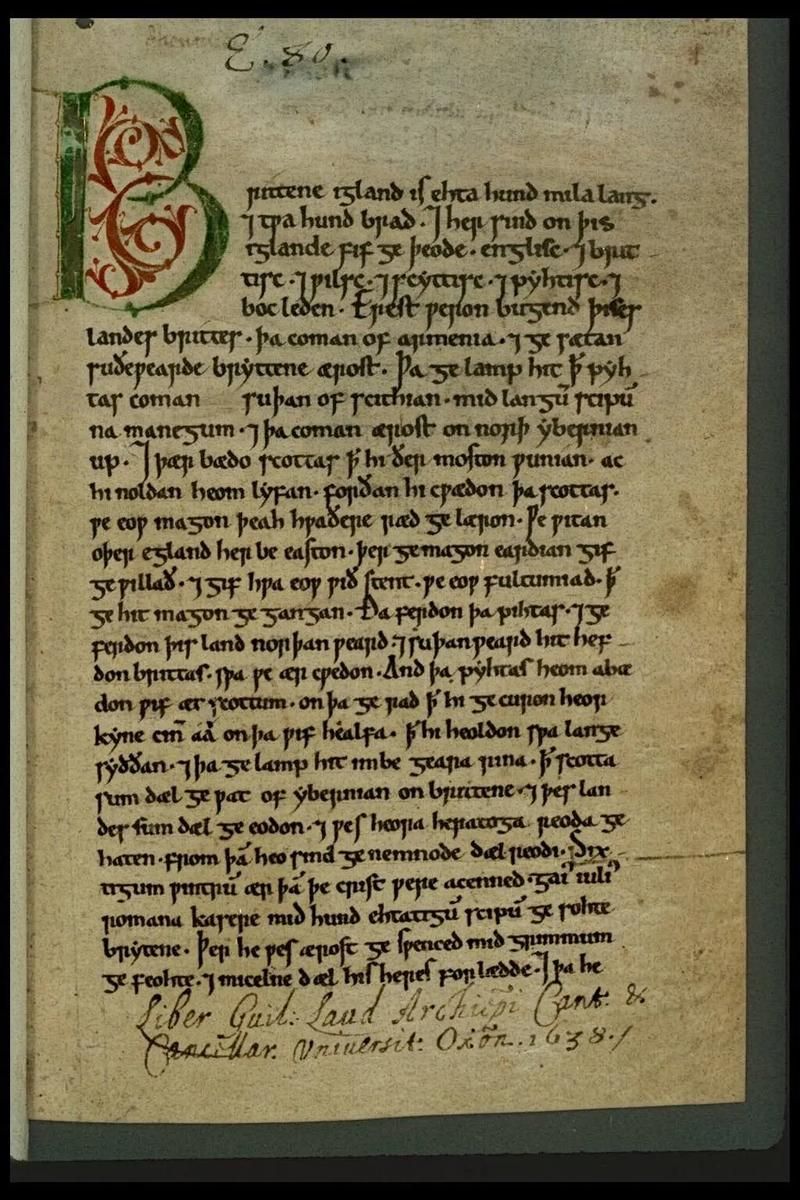 E. 80.
Brittene igland is ehta hund mila lang.
⁊ twa hund brad. ⁊ her sind on þis
iglande fif ge þeode. englisc. ⁊ brit
tisc. ⁊ wilsc. ⁊ scyttisc. ⁊ pyhtisc. ⁊
boc leden. Erest weron bugend þises
landes brittes. þa coman of armenia. ⁊ ge sætan
suðewearde bryttene ærost. Þa ge lamp hit þ̄ pyh
tas coman suþan of scithian. mid langū scipū
na manegum. ⁊ þa coman ærost on norþ ybernian
up. ⁊ þær bædo scottas þ̄ hi ðer moston wunian. ac
hi noldan heom lyfan. forðan hi cwædon þa scottas.
we eow magon þeah hwaðere ræd ge læron. We witan
oþer egland her be easton. þer ge magon eardian gif
ge willað. ⁊ gif hwa eow wið stent. we eow fultumiað. þ̄
ge hit magon ge gangan. Ða ferdon þa pihtas. ⁊ ge
ferdon þis land norþan weard. ⁊ suþan weard hit hef
don brittas. swa we ær cwedon. And þa pyhtas heom abæ
don wif æt scottum. on þa ge rad þ̄ hi ge curon heor
kyne cīn aa on þa wif healfa. þ̄ hi heoldon swa lange
syððan. ⁊ þa ge lamp hit imbe geara rina. þ̄ scotta
sum dæl ge wat of ybernian on brittene. ⁊ þes lan
des sum dæl ge eodon. ⁊ wes heora heratoga reoda ge
haten. from þā heo sind ge nemnode dæl reodi. Six
tigum wintrū ær þā þe crist were acenned. gaī iuliꝰ
romana kasere mid hund ehtatigū scipū ge sohte
brytene. Þer he wes ærost ge swenced mid grimmum
ge feohte. ⁊ micelne dæl his heres forlædde. ⁊ þa he
Liber Guil: Laud Archiep̄i Cant. &
Cancillar. Vniuersit: Oxōn. 1638.